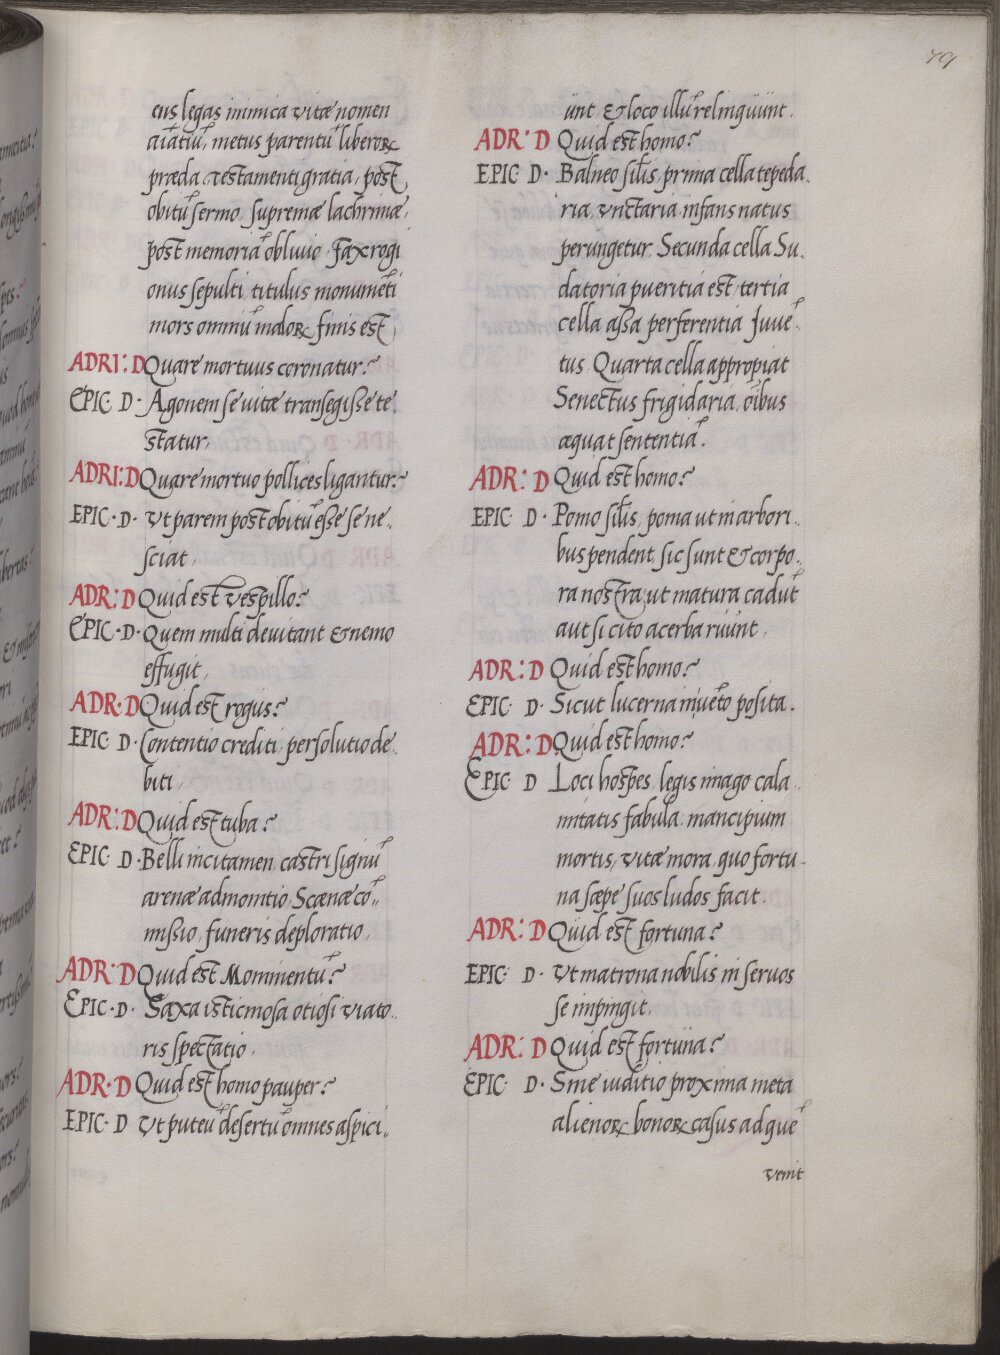 79
ens legas inimica vitæ nomen
aīatiū, metus parentū liberoꝝ
præda, testamenti gratia, post
obitū sermo, supremæ lachrimæ,
post memoriā oblivio, fax rogi
onus sepulti, titulus monumēti
mors omniū maloꝝ finis est,
ADRI: D Quare mortuus coronatur?
EPIC D· Agonem se vitæ transegisse te,
statur,
ADRI: D Quare mortuo pollices ligantur?
EPIC· D· Vt parem post obitū esse se ne,
sciat,
ADR: D Quid est vespillo?
EPIC· D· Quem multi devitant & nemo
effugit,
ADR: D Quid est rogus?
EPIC D· Contentio crediti, persolutio de,
biti,
ADR: D Quid est tuba?
EPIC D· Belli incitamen, castri signū
arenæ admonitio, Scænæ cō,,
missio, funeris deploratio,
ADR: D Quid est Monimentū?
EPIC· D· Saxa isticmosa otiosi viato,,
ris spectatio,
ADR· D Quid est homo pauper?
EPIC· D Vt puteū desertū omnes aspici,,
unt, & loco illū relinquunt.
ADR· D Quid est homo?
EPIC D· Balneo silis, prima cella tepeda,
ria, vnctaria infans natus
perungetur. Secunda cella Su,
datoria pueritia est, tertia
cella assa perferentia Juvē,
tus. Quarta cella appropiat
Senectus frigidaria, oībus
æquat sententiā.
ADR: D Quid est homo?
EPIC D· Pomo silis, poma ut in arbori,
bus pendent, sic sunt & corpo,
ra nostra, ut matura cadūt
aut si cito acerba ruunt,
ADR: D Quid est homo?
EPIC· D· Sicut lucerna in vēto posita.
ADR: D. Quid est homo?
EPIC· D Loci hospes, legis imago cala,
mitatis fabula, mancipium
mortis, vitæ mora, quo fortu,
na sæpe suos ludos facit.
ADR: D Quid est fortuna?
EPIC· D· Vt matrona nobilis in servos
se impingit.
ADR: D Quid est fortuna?
EPIC· D· Sine iuditio proxima meta
alienoꝝ bonoꝝ casus ad quē
venit